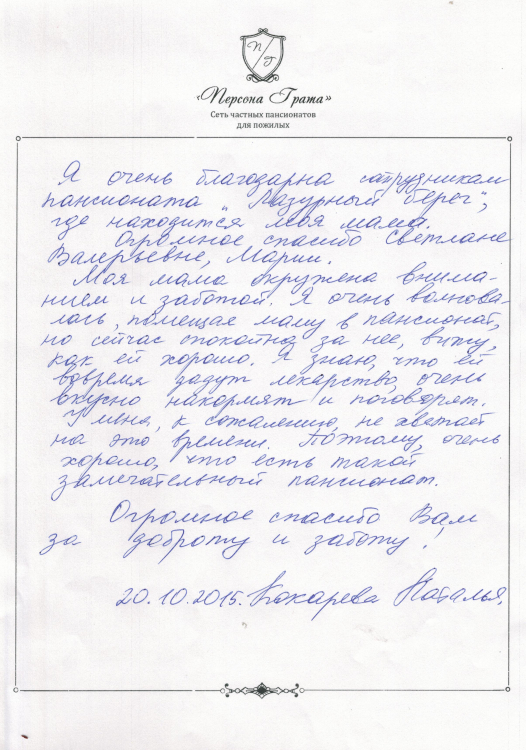 П Г
«Персона Грата»
Сеть частных пансионатов
для пожилых
Я очень благодарна сотрудникам
пансионата „Лазурный берег",
где находится моя мама.
Огромное спасибо Светлане
Валерьевне, Марии.
Моя мама окружена внима-
нием и заботой. Я очень волнова-
лась, помещая маму в пансионат,
но сейчас спокойна за нее, вижу,
как ей хорошо. Я знаю, что ей
вовремя дадут лекарство, очень
вкусно накормят и поговорят.
У меня, к сожалению, не хватает
на это времени. Поэтому, очень
хорошо, что есть такой
замечательный пансионат.
Огромное спасибо Вам
за доброту и заботу!
20.10.2015. Кокарева Наталья.